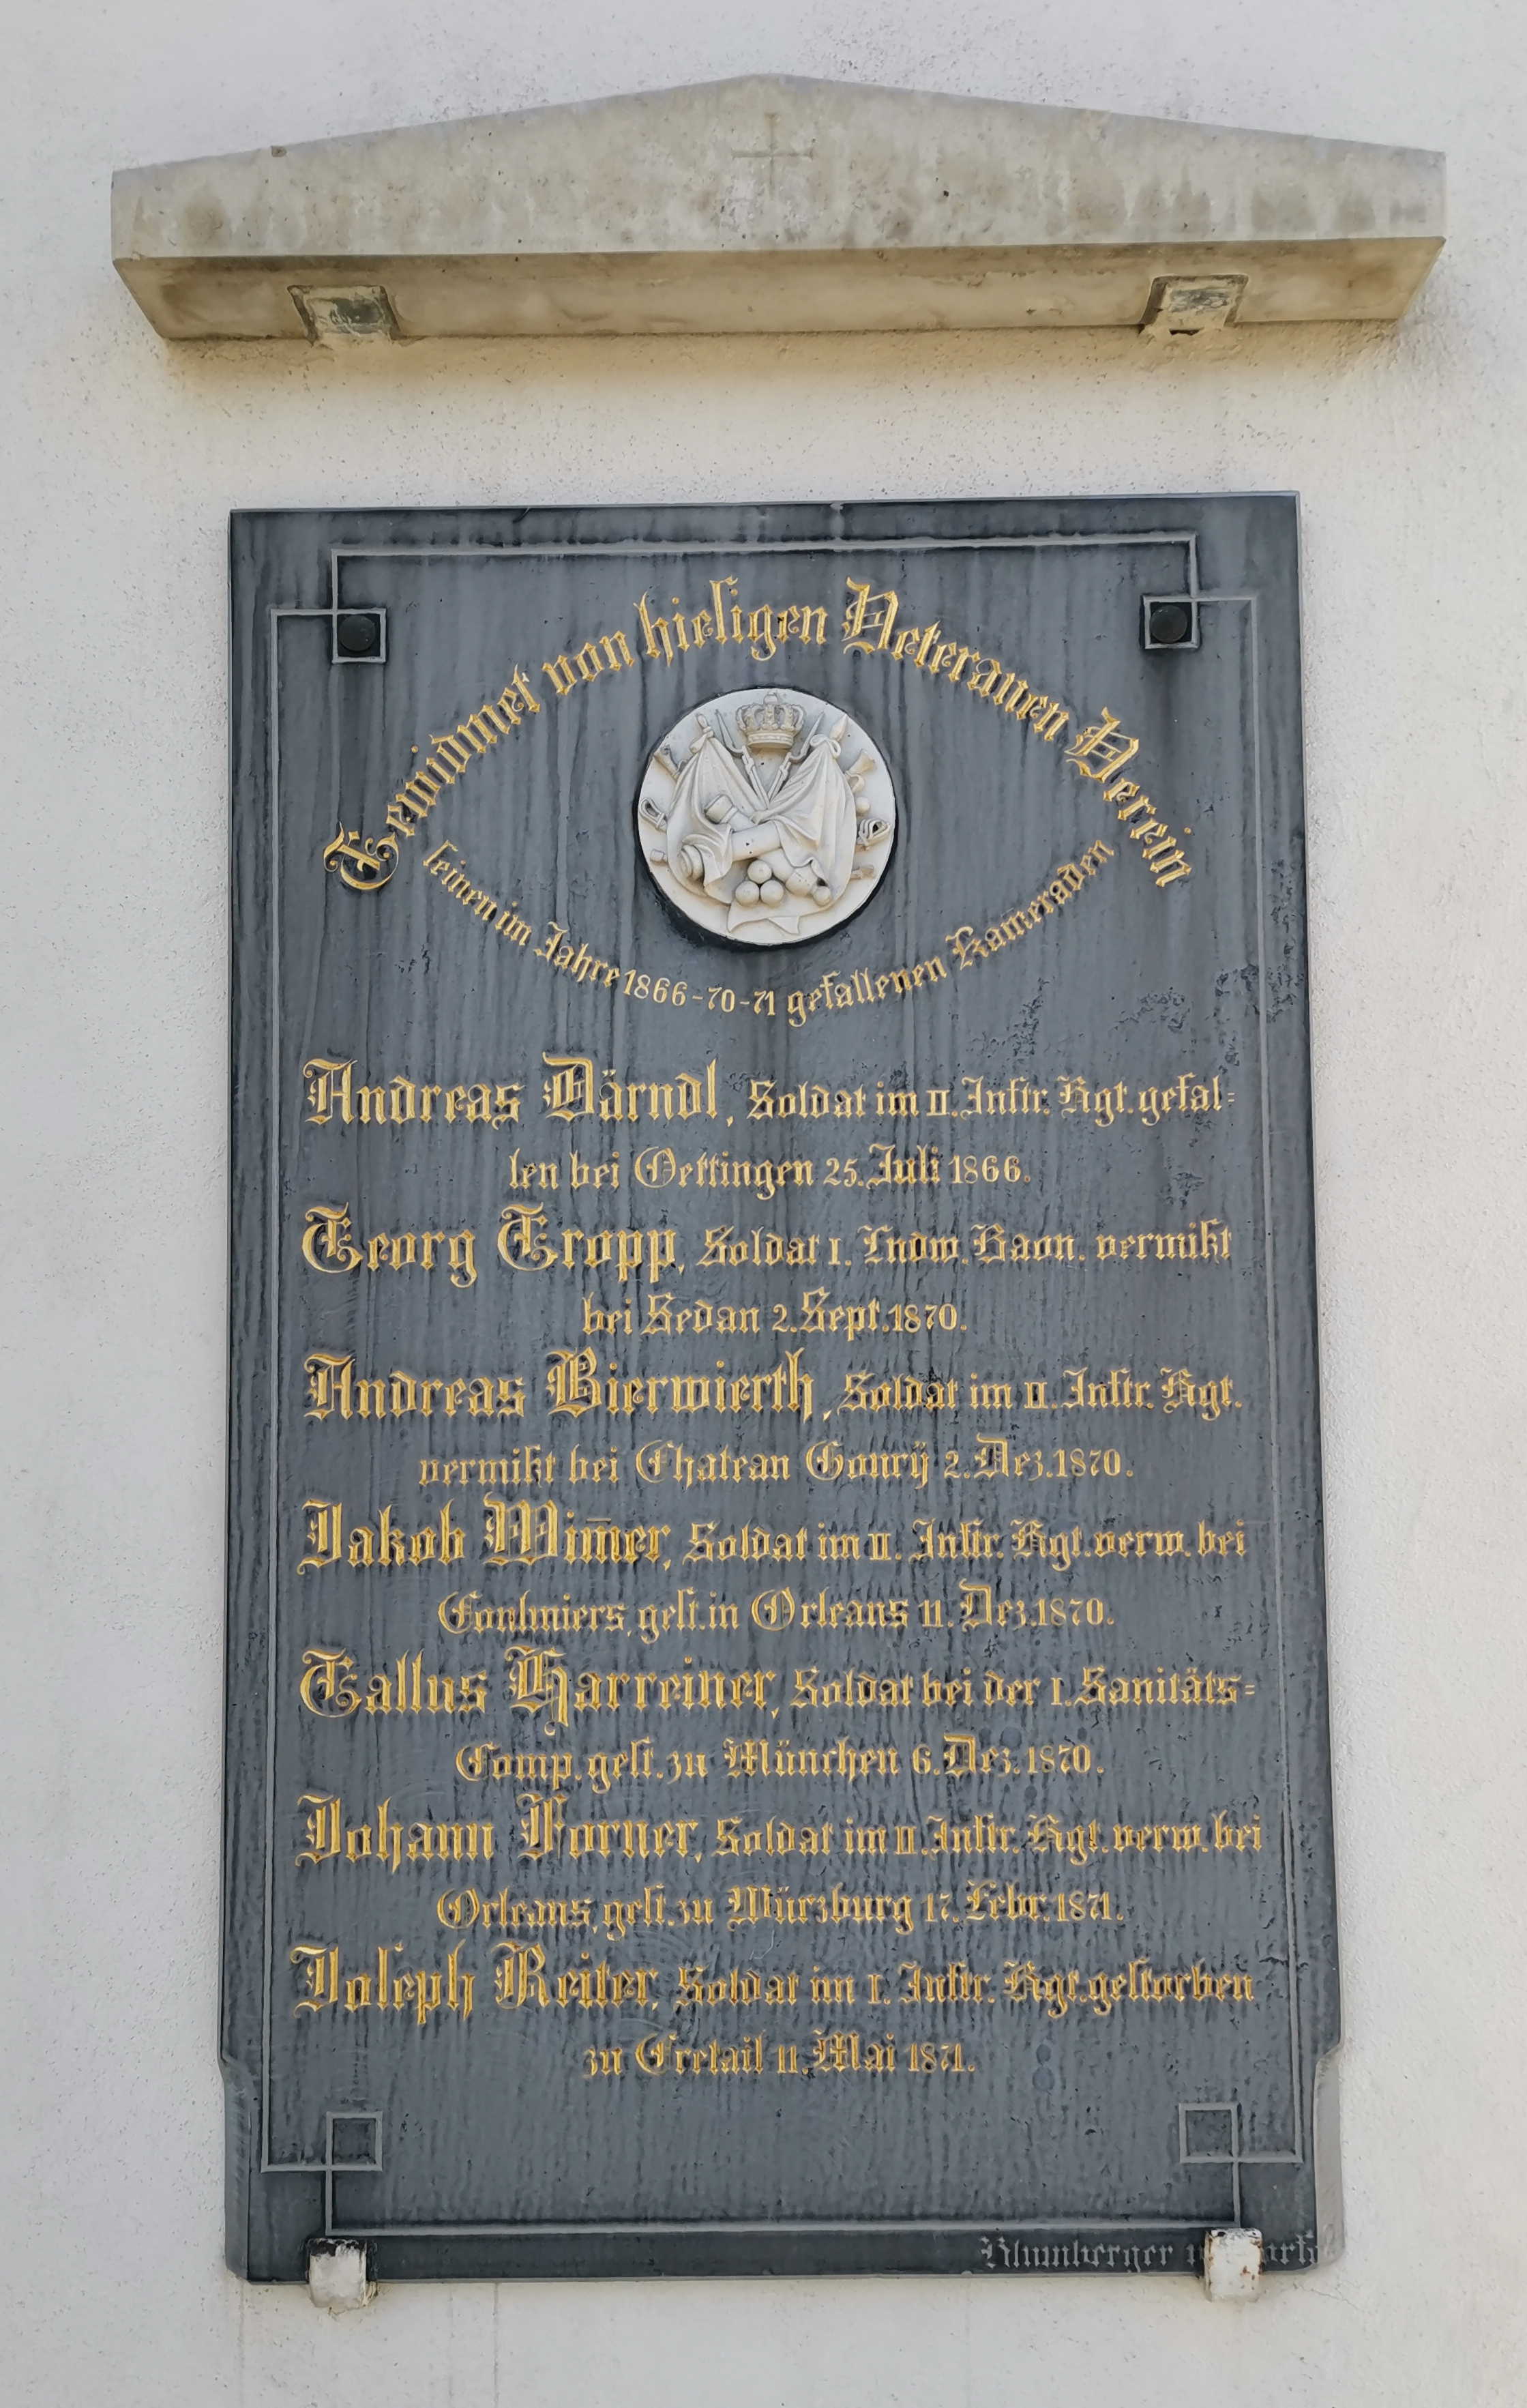 Gewidmet von hiesigen Veteranen Verein
seinen im Jahre 1866-70-71 gefallenen Kameraden
Andreas Därndl, Soldat im II. Inftr. Rgt. gefal=
len bei Oettingen 25. Juli 1866.
Georg Gropp, Soldat I. Lndw. Baon. vermißt
bei Sedan 2. Sept. 1870.
Andreas Bierwierth, Soldat im II. Inftr. Rgt.
vermißt bei Chateau Gourÿ 2. Dez. 1870.
Jakob Wim̄er, Soldat im II. Inftr. Rgt. verw. bei
Coulmiers, gest. in Orleans 11. Dez. 1870.
Gallus Harreiner, Soldat bei der I. Sanitäts=
Comp. gest. zu München 6. Dez. 1870.
Johann Forner, Soldat im II. Inftr. Rgt. verw. bei
Orleans, gest. zu Würzburg 17. Febr. 1871.
Joseph Reiter, Soldat im I. Inftr. Rgt. gestorben
zu Cretail 11. Mai 1871.
Blumberger